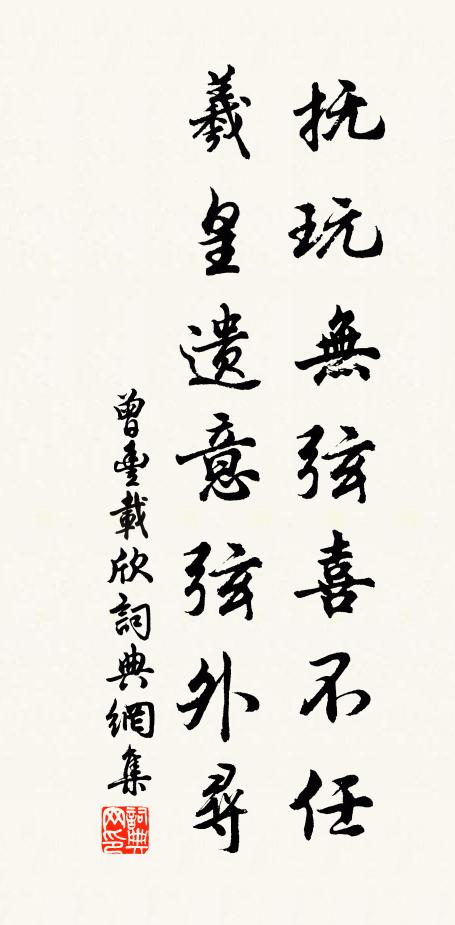 抚玩無弦喜不任
羲皇遺意弦外尋
曾豐載欣詞典網集
詞典网印